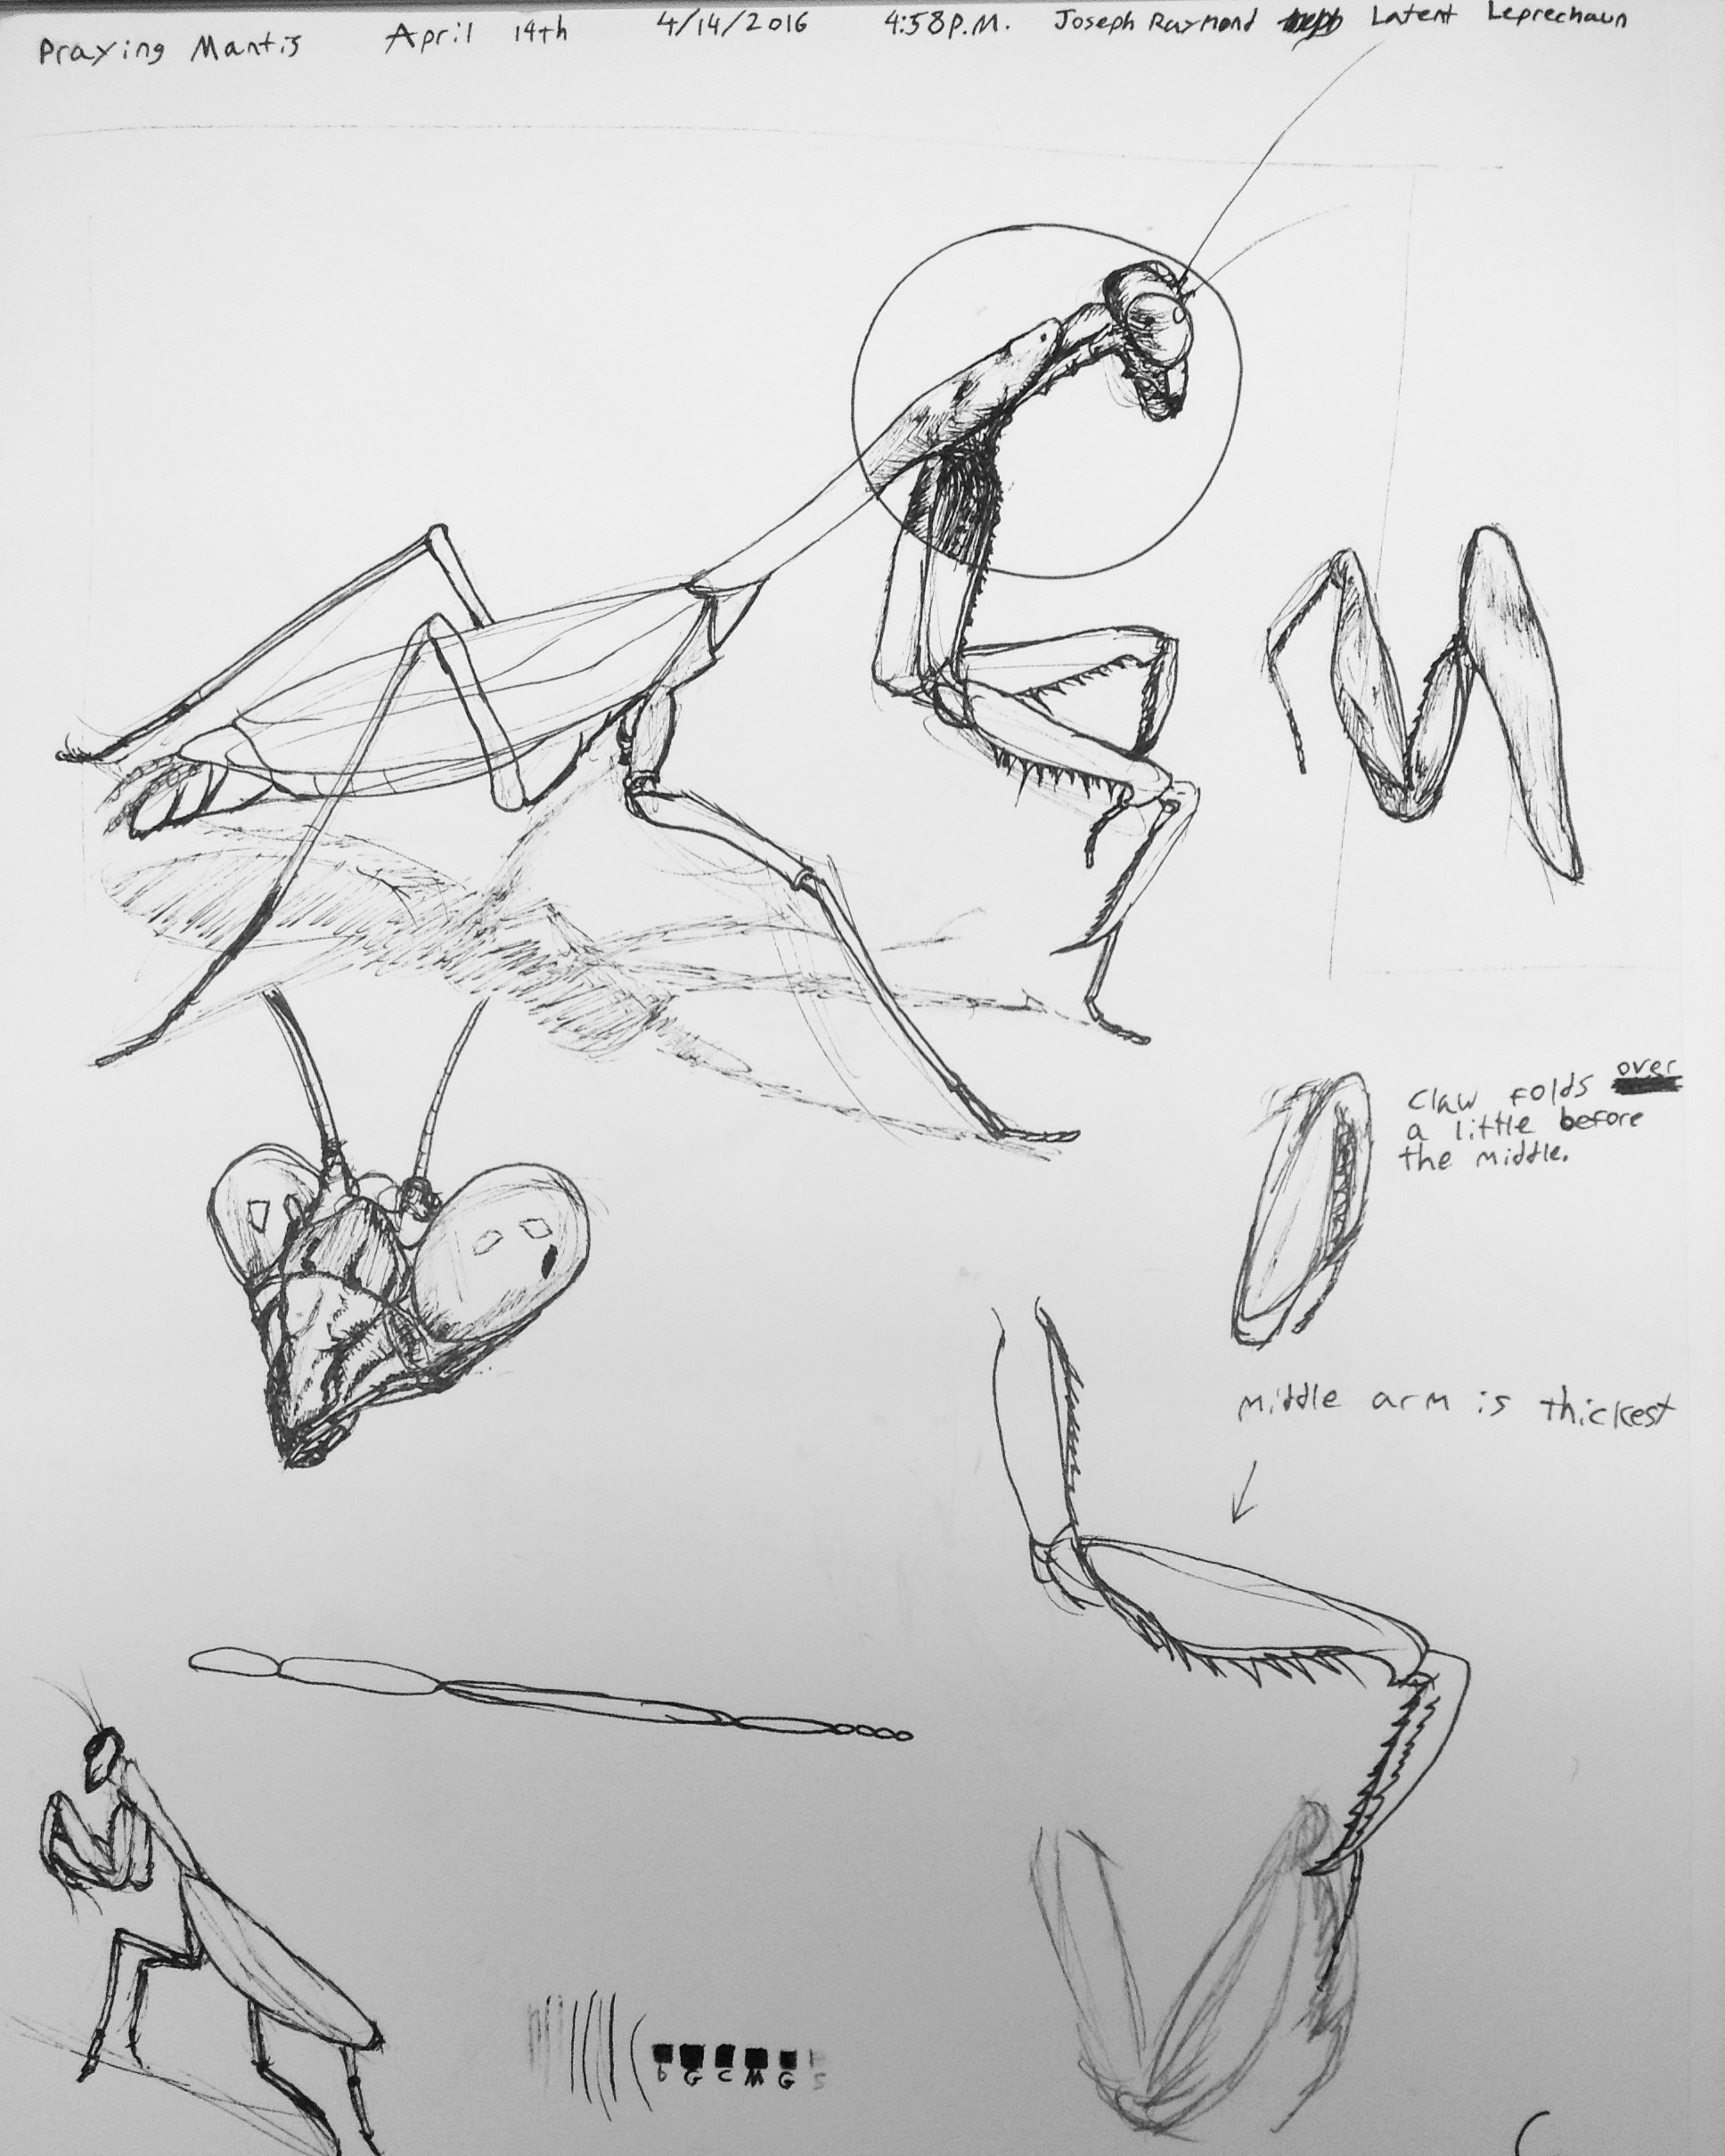 Praying Mantis April 14th 4/14/2016 4:58P.M. Joseph Raymond Latent Leprechaun
claw folds over
a little before
the middle.
middle arm is thickest
b G C M G S